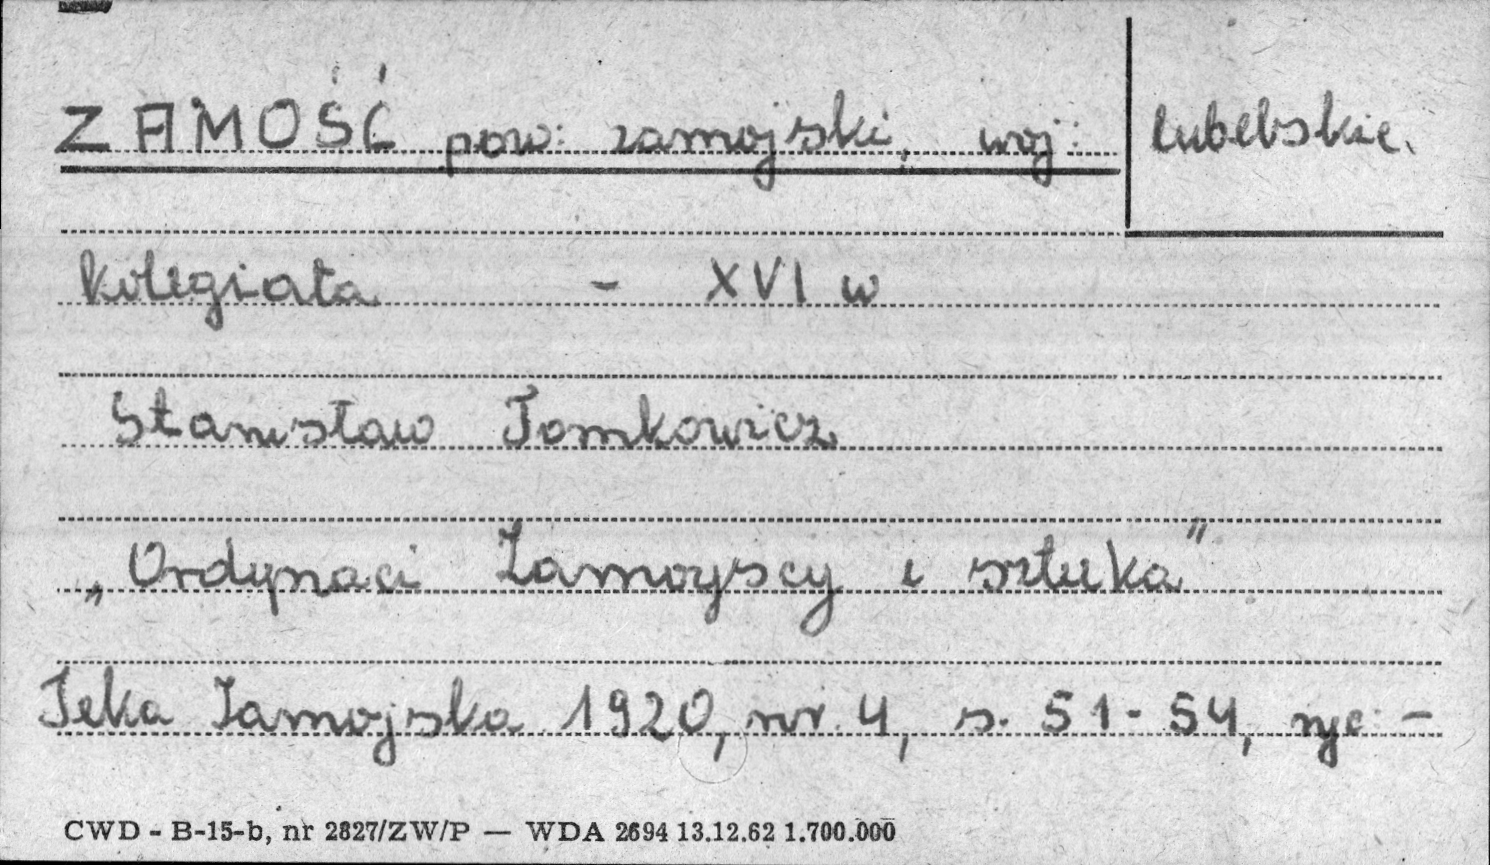 ZAMOŚĆ pow: zamojski, woj: lubelskie.
Kolegiata - XVI w
Stanisław Tomkowicz
„Ordynaci Zamoyscy i sztuka"
Teka Zamojska 1920, nr. 4, s. 51-54, ryc: -
CWD - B-15-b, nr 2827/ZW/P — WDA 2694 13.12.62 1.700.000